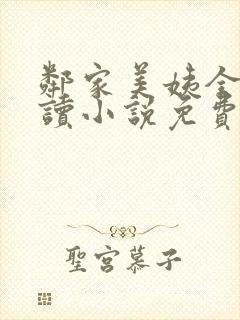 鄰家美姨全
讀小説免費
聖宮慕子